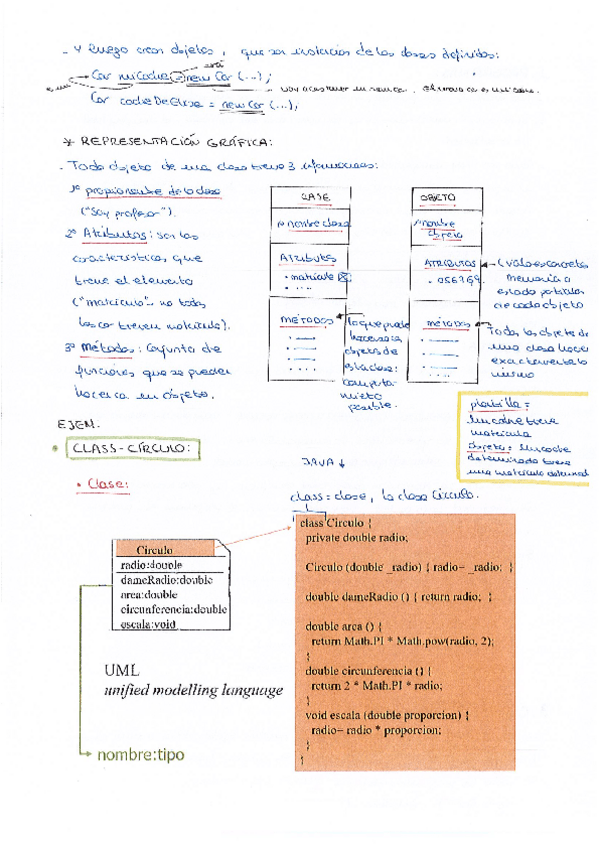 - Y luego crear objetos, que son instancias de las clases definidas:
Car miCoche = new Car (...);
Car cocheDeClase = new Car (...);
* REPRESENTACIÓN GRÁFICA:
- Todo objeto de una clase tiene 3 informaciones:
1º propio nombre de la clase
("Soy profesor").
2º Atributos: son las
características que
tiene el elemento
("matrícula" - no todos
los tienen matrícula).
3º Métodos: Conjunto de
funciones que se pueden
hacer a un objeto.
CLASE
nombre clase
ATRIBUTOS
• matrícula
• ....
MÉTODOS
lo que puede
hacer
objetos de
esta clase:
comporta-
miento
posible.
OBJETO
nombre
objeto
ATRIBUTOS
• 056769
(valores concretos
memoria o
estado particular
de cada objeto
métodos
Todos los objetos de
una clase hacen
exactamente lo
mismo
plantilla =
Un coche tiene
matrícula
Objeto = Un coche
determinado tiene
una matrícula
EJEM.
• CLASS - CÍRCULO:
• Clase:
JAVA ↓
class = clase, la clase Círculo.
Circulo
radio:double
dameRadio:double
area:double
circunferencia:double
escala:void
UML
unified modelling language
nombre:tipo
class Circulo {
private double radio;
Circulo (double _radio) { radio= _radio; }
double dameRadio () { return radio; }
double area () {
return Math.PI * Math.pow(radio, 2);
}
double circunferencia () {
return 2 * Math.PI * radio;
}
void escala (double proporcion) {
radio= radio * proporcion;
}
}